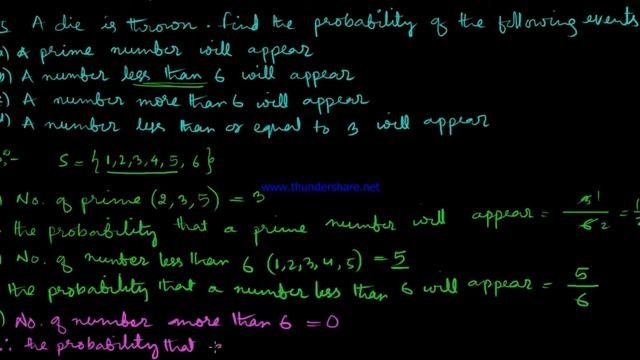 5 A die is thrown. Find the probability of the following events
a) A prime number will appear
b) A number less than 6 will appear
c) A number more than 6 will appear
d) A number less than or equal to 3 will appear
S = {1,2,3,4,5,6}
www.thundershare.net
) No. of prime (2,3,5) = 3
the probability that a prime number will appear = 3 1 / 6 2 = 1/2
) No. of number less than 6 (1,2,3,4,5) = 5
the probability that a number less than 6 will appear = 5/6
) No. of number more than 6 = 0
∴ the probability that